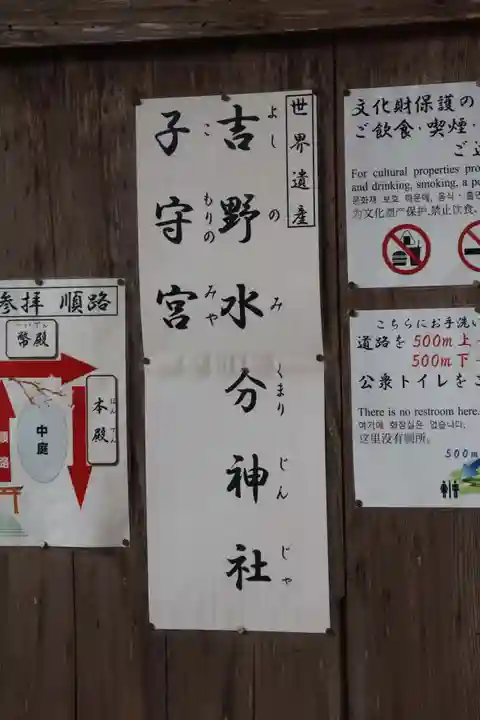 世界遺産
吉野水分神社
よしのみくまりじんじゃ
子守宮
こもりのみや
参拝 順路
幣殿
へいでん
本殿
ほんでん
中庭
順路
文化財保護の
ご飲食・喫煙・
ご
For cultural properties pro
and drinking, smoking, a p
문화재 보호 때문에, 음식・흡연
为文化遗产保护,禁止饮食,
こちらにお手洗い
道路を 500m 上
500m 下
公衆トイレをご
There is no restroom here.
여기에 화장실은 없습니다.
这里没有厕所。
500m